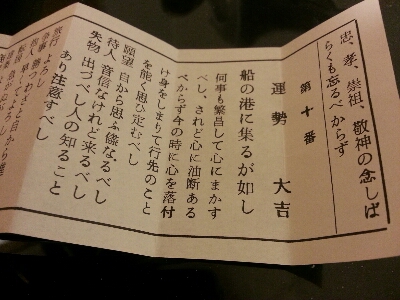 忠、孝、崇祖、敬神の念しば
らくも忘るべからず
第十番
運勢 大吉
船の港に集るが如し
何事も繁昌して心にまかす
べし、されど心に油断ある
べからず今の時に心を落付
け身をしまりて行先のこと
を能く思ひ定むべし
願望 自から思ふ儘なるべし
待人 音信なけれど来るべし
失物 出づべし人の知ること
あり注意すべし
旅行 よろし